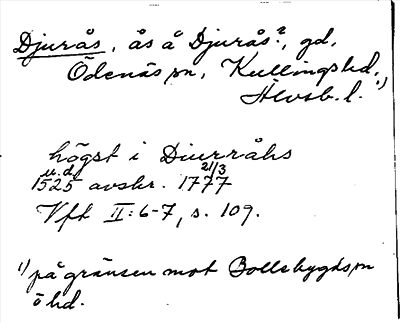 Djurås, ås å Djurås?, gd,
Ödenäs sn, Kullings hd, 1)
Älvsb. l.
högst i Diurråhs
u.d. 21/3
1525 avskr. 1777
Vft II:6-7, s. 109.
1) på gränsen mot Bollebygds sn
o hd.